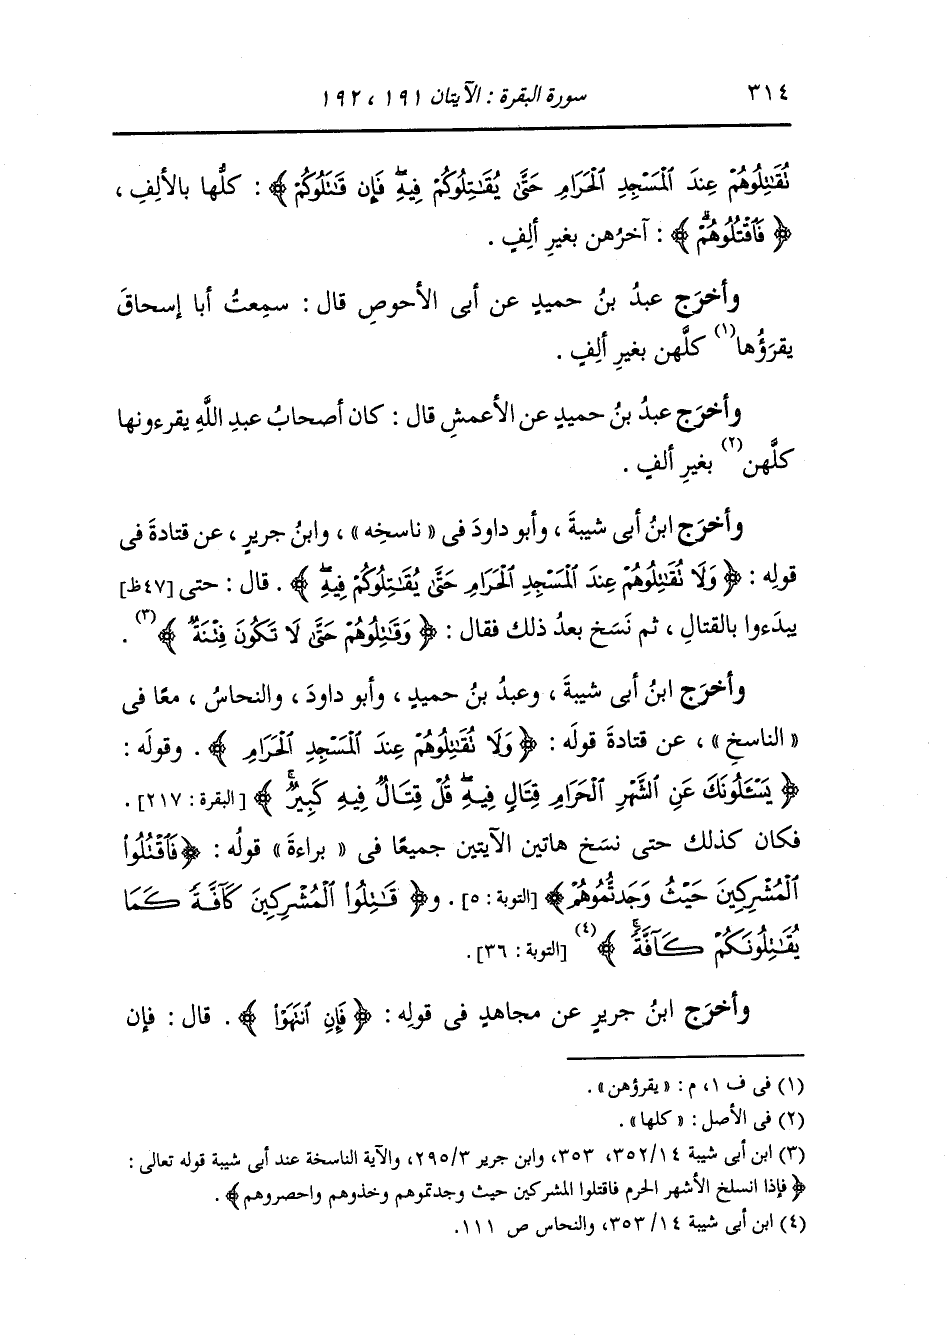 ٣١٤ سورة البقرة : الآيتان ١٩١ ، ١٩٢
نُقَٰتِلُوهُمۡ عِندَ ٱلۡمَسۡجِدِ ٱلۡحَرَامِ حَتَّىٰ يُقَٰتِلُوكُمۡ فِيهِۖ فَإِن قَٰتَلُوكُمۡ ﴾ : كلُّها بالألِفِ ،
﴿ فَٱقۡتُلُوهُمۡۗ ﴾ : آخرُهن بغيرِ ألِفٍ .
وأخرَج عبدُ بنُ حميدٍ عن أبى الأحوصِ قال : سمِعتُ أبا إسحاقَ
يقرَؤُها(١) كلَّهن بغيرِ ألِفٍ .
وأخرَج عبدُ بنُ حميدٍ عن الأعمشِ قال : كان أصحابُ عبدِ اللَّهِ يقرءونها
كلَّهن(٢) بغيرِ ألفٍ .
وأخرَج ابنُ أبى شيبةَ ، وأبو داودَ فى « ناسخِه » ، وابنُ جريرٍ ، عن قتادةَ فى
قولِه : ﴿ وَلَا تُقَٰتِلُوهُمۡ عِندَ ٱلۡمَسۡجِدِ ٱلۡحَرَامِ حَتَّىٰ يُقَٰتِلُوكُمۡ فِيهِۖ ﴾ . قال : حتى [٤٧ظ]
يبدَءوا بالقتالِ ، ثم نَسَخ بعدُ ذلك فقال : ﴿ وَقَٰتِلُوهُمۡ حَتَّىٰ لَا تَكُونَ فِتۡنَةٞ ﴾(٣) .
وأخرَج ابنُ أبى شيبةَ ، وعبدُ بنُ حميدٍ ، وأبو داودَ ، والنحاسُ ، معًا فى
« الناسخِ » ، عن قتادةَ قولَه : ﴿ وَلَا تُقَٰتِلُوهُمۡ عِندَ ٱلۡمَسۡجِدِ ٱلۡحَرَامِ ﴾ . وقولَه :
﴿ يَسۡـَٔلُونَكَ عَنِ ٱلشَّهۡرِ ٱلۡحَرَامِ قِتَالٖ فِيهِۖ قُلۡ قِتَالٞ فِيهِ كَبِيرٞۚ ﴾ [البقرة : ٢١٧] .
فكان كذلك حتى نسَخ هاتين الآيتين جميعًا فى « براءةَ » قولُه : ﴿ فَٱقۡتُلُواْ
ٱلۡمُشۡرِكِينَ حَيۡثُ وَجَدتُّمُوهُمۡ ﴾ [التوبة : ٥] . و﴿ قَٰتِلُواْ ٱلۡمُشۡرِكِينَ كَآفَّةٗ كَمَا
يُقَٰتِلُونَكُمۡ كَآفَّةٗۚ ﴾(٤) [التوبة : ٣٦] .
وأخرَج ابنُ جريرٍ عن مجاهدٍ فى قولِه : ﴿ فَإِنِ ٱنتَهَوۡاْ ﴾ . قال : فإن
(١) فى ف ١، م : « يقرؤهن » .
(٢) فى الأصل : « كلها » .
(٣) ابن أبى شيبة ٣٥٢/١٤، ٣٥٣، وابن جرير ٢٩٥/٣، والآية الناسخة عند أبى شيبة قوله تعالى :
﴿ فإذا انسلخ الأشهر الحرم فاقتلوا المشركين حيث وجدتموهم وخذوهم واحصروهم ﴾ .
(٤) ابن أبى شيبة ٣٥٣/١٤، والنحاس ص ١١١.